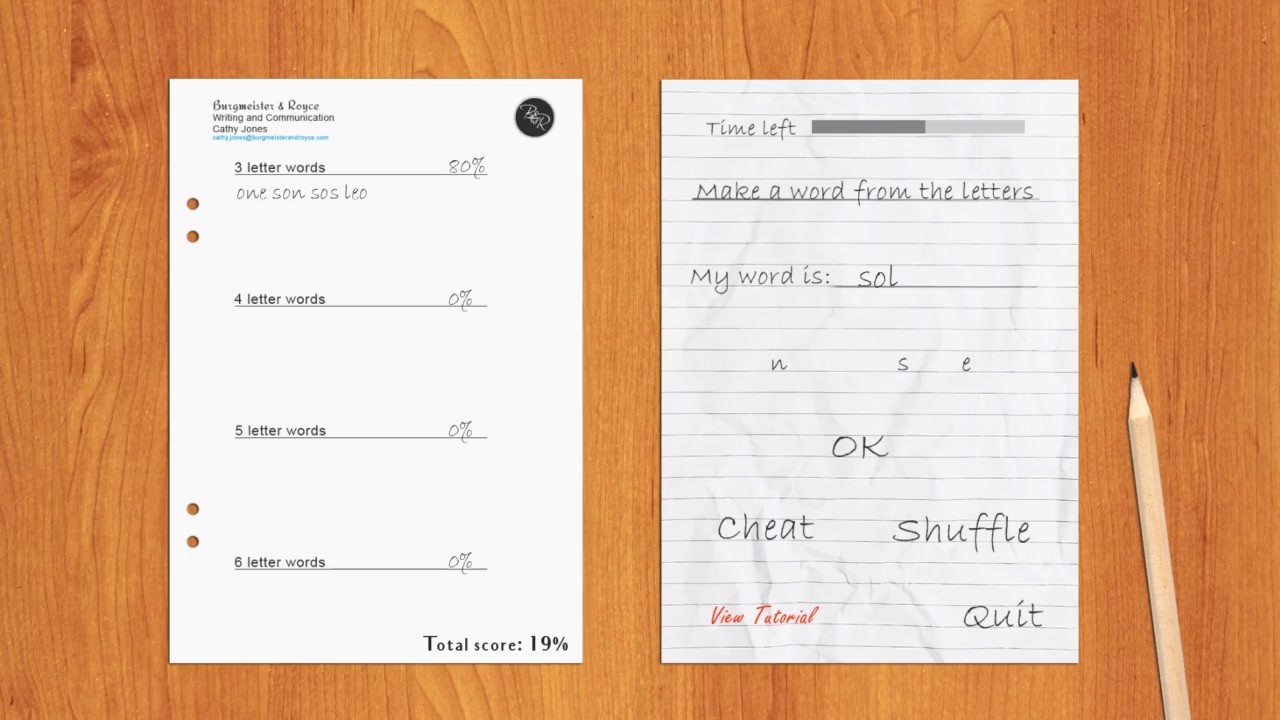 Burgmeister & Royce
Writing and Communication
Cathy Jones
cathy.jones@burgmeisterandroyce.com
B&R
3 letter words 80%
one son sos leo
4 letter words 0%
5 letter words 0%
6 letter words 0%
Total score: 19%
Time left
Make a word from the letters
My word is: sol
n s e
OK
Cheat Shuffle
View Tutorial Quit